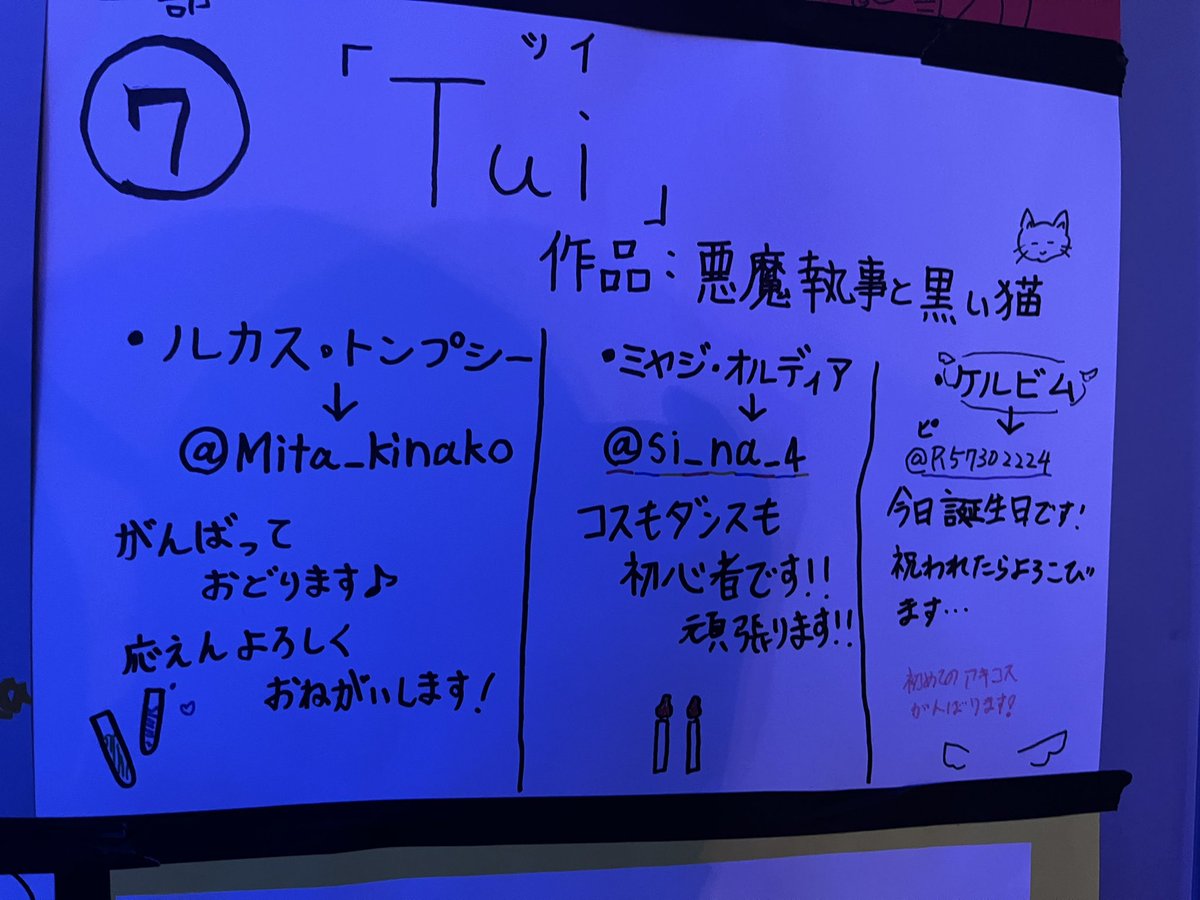 部
⑦
ツイ
「Tui」
作品：悪魔執事と黒い猫
・ルカス・トンプシー
↓
@Mita_kinako
がんばって
おどります♪
応えんよろしく
おねがいします！
・ミヤジ・オルディア
↓
@si_na_4
コスもダンスも
初心者です!!
頑張ります!!
・ケルビム
↓
ピ
@P57302224
今日誕生日です！
祝われたらよろこび
ます…
初めてのアキコス
がんばります！